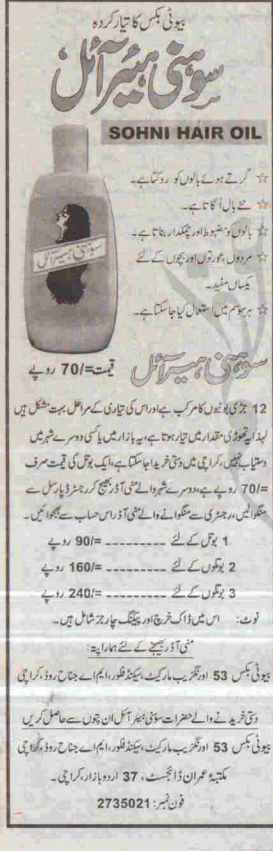 بیوٹی بکس کا تیار کردہ
سوہنی ہیئر آئل
SOHNI HAIR OIL
☆ گرتے ہوئے بالوں کو روکتا ہے۔
☆ نئے بال اُگاتا ہے۔
☆ بالوں کو مضبوط اور چمکدار بناتا ہے۔
☆ مردوں، عورتوں اور بچوں کے لئے
یکساں مفید۔
☆ ہر موسم میں استعمال کیا جا سکتا ہے۔
سوہنی ہیئر آئل
قیمت =/70 روپے
سوہنی ہیئر آئل
12 جڑی بوٹیوں کا مرکب ہے اور اس کی تیاری کے مراحل بہت مشکل ہیں
لہذا یہ تھوڑی مقدار میں تیار ہوتا ہے، یہ بازار میں یا کسی دوسرے شہر میں
دستیاب نہیں، کراچی میں دستی خریدا جا سکتا ہے، ایک بوتل کی قیمت صرف
=/70 روپے ہے، دوسرے شہر والے منی آڈر بھیج کر رجسٹرڈ پارسل سے
منگوالیں، رجسٹری سے منگوانے والے منی آڈر اس حساب سے بھجوائیں۔
1 بوتل کے لئے ---------- =/90 روپے
2 بوتلوں کے لئے ---------- =/160 روپے
3 بوتلوں کے لئے ---------- =/240 روپے
نوٹ: اس میں ڈاک خرچ اور پیکنگ چارجز شامل ہیں۔
منی آڈر بھیجنے کے لئے ہمارا پتہ:
بیوٹی بکس 53 اورنگزیب مارکیٹ، سیکنڈ فلور، ایم اے جناح روڈ، کراچی
دستی خریدنے والے حضرات سوہنی ہیئر آئل ان پتوں سے حاصل کریں
بیوٹی بکس 53 اورنگزیب مارکیٹ، سیکنڈ فلور، ایم اے جناح روڈ، کراچی
مکتبۂ عمران ڈائجسٹ، 37 اردو بازار، کراچی۔
فون نمبر: 2735021